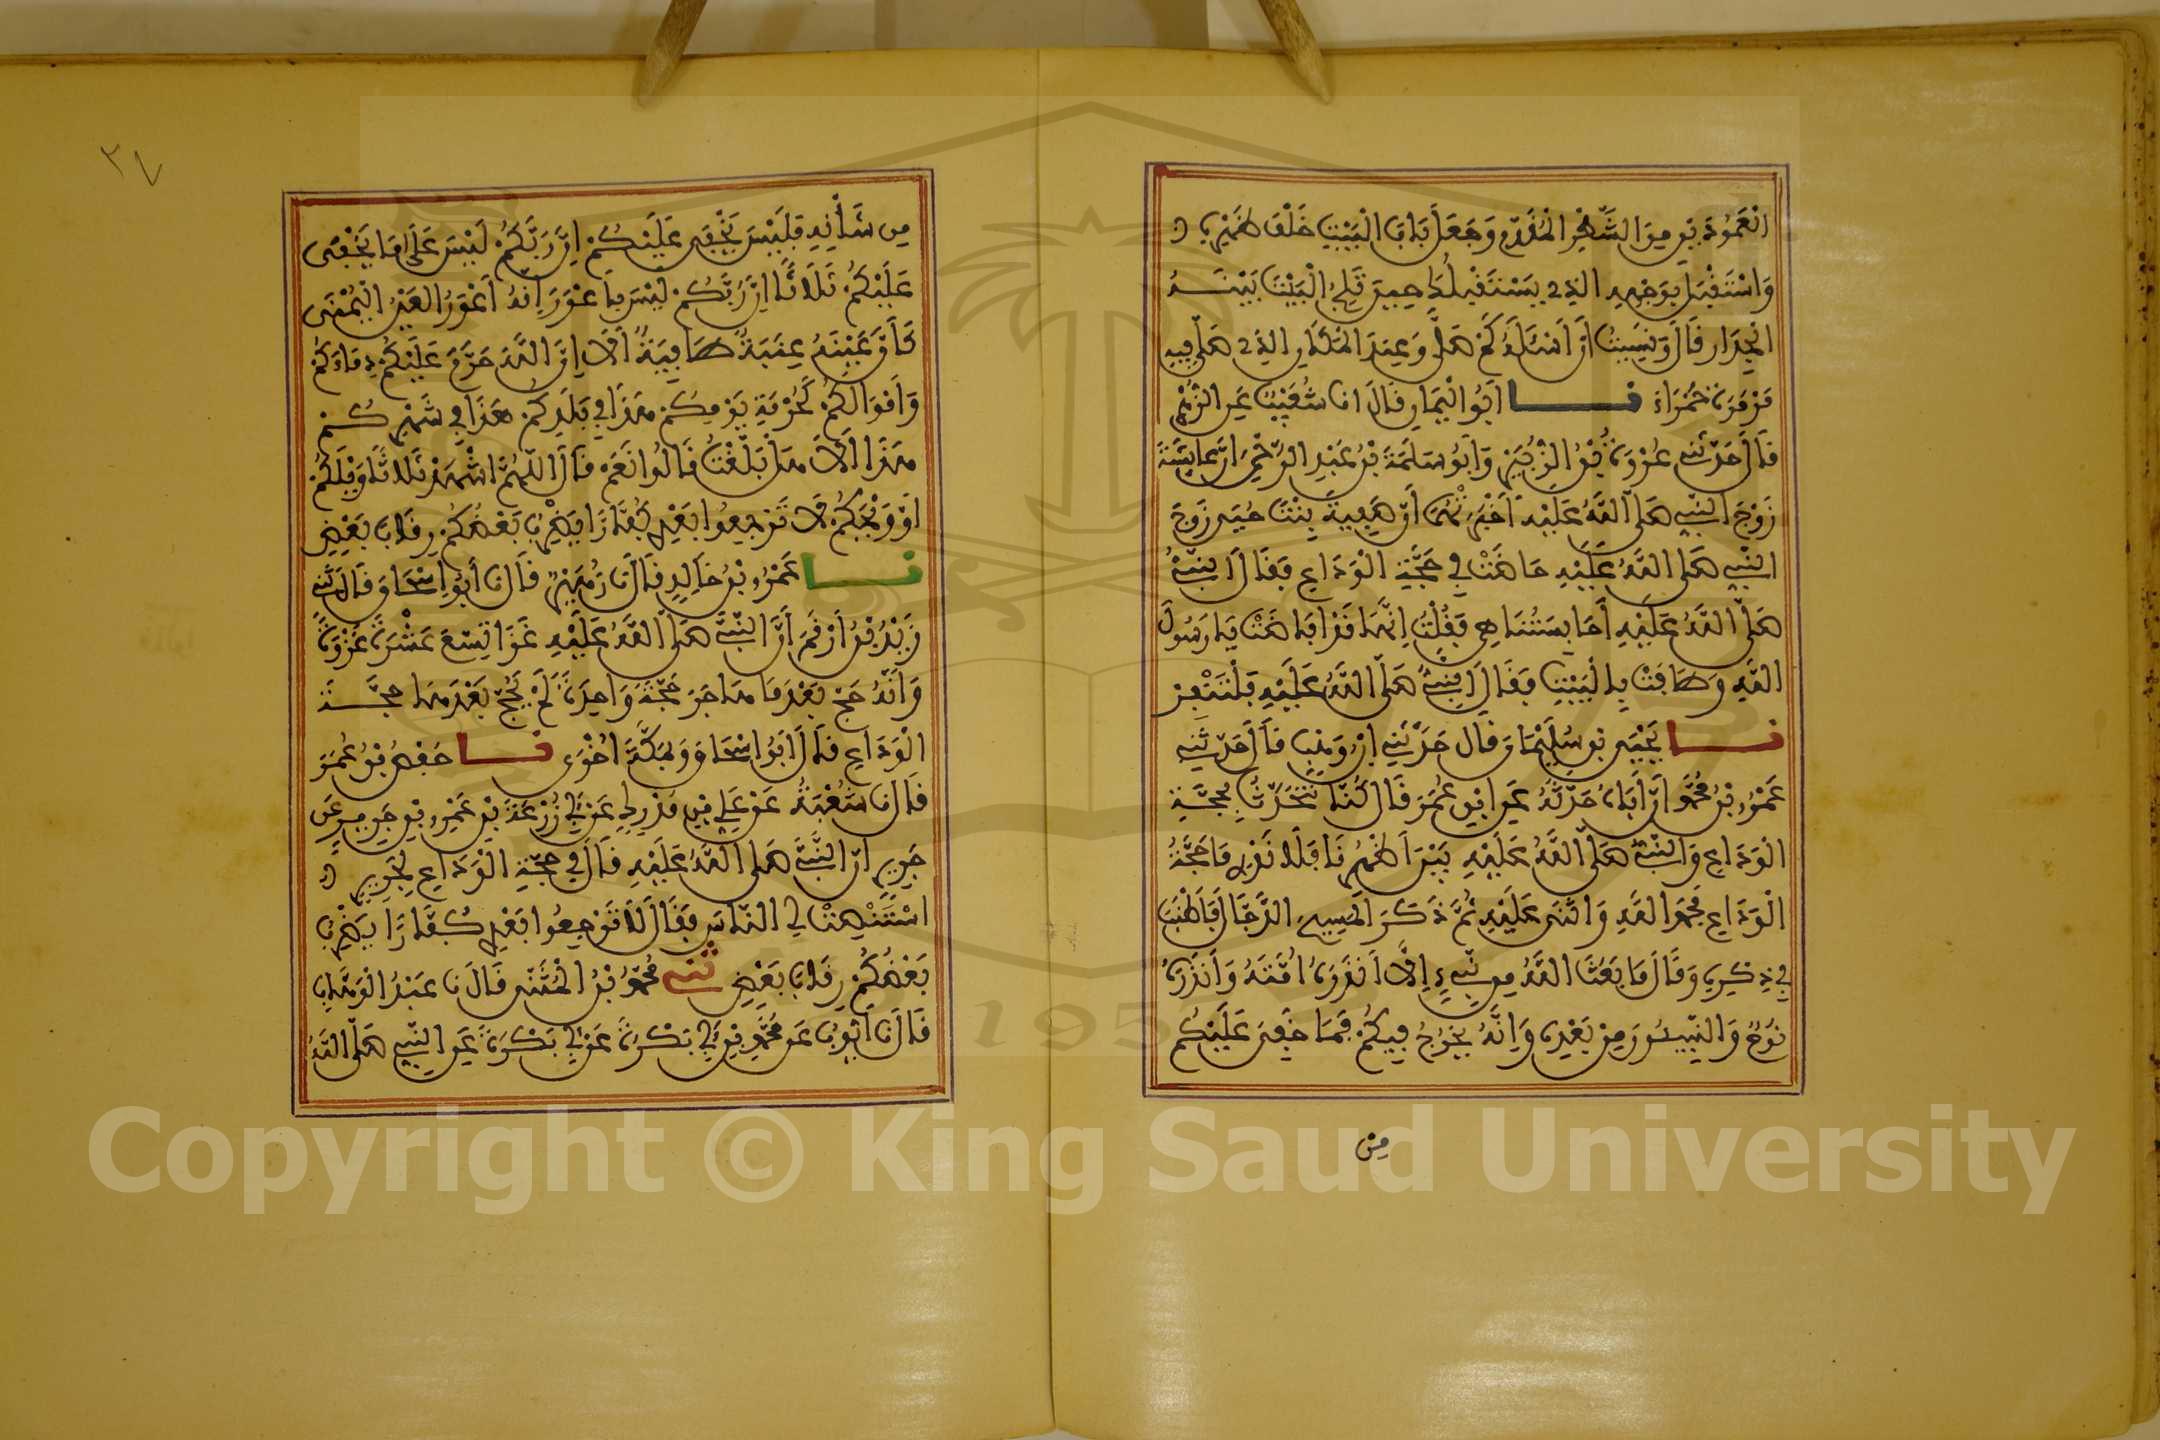 الْعَمُودَيْنِ مِنَ السَّطْرِ الْمُقَدَّمِ وَجَعَلَ بَابَ الْبَيْتِ خَلْفَ ظَهْرِهِ
وَاسْتَقْبَلَ بِوَجْهِهِ الذِي يَسْتَقْبِلُكَ حِينَ تَلِجُ الْبَيْتَ بَيْنَهُ
الْجِدَارِ قَالَ وَنَسِيتُ أَنْ أَسْئَلَهُ كَمْ صَلَّى وَعِنْدَ الْمَكَانِ الذِي صَلَّى فِيهِ
مَرْمَرَةٌ حَمْرَاءُ نا أَبُو الْيَمَانِ قَالَ انا شُعَيْبٌ عَنِ الزُّهْرِي
قَالَ حَدَّثَنِي عُرْوَةُ بْنُ الزُّبَيْرِ وَأَبُو سَلَمَةَ بْنُ عَبْدِ الرَّحْمَنِ أَنَّ عَائِشَةَ
زَوْجَ النَّبِيِّ صَلَّى اللَّهُ عَلَيْهِ أَخْبَرَتْهُمَا أَنَّ صَفِيَّةَ بِنْتَ حُيَيٍّ زَوْجَ
النَّبِيِّ صَلَّى اللَّهُ عَلَيْهِ حَاضَتْ فِي حَجَّةِ الْوَدَاعِ فَقَالَ النَّبِيُّ
صَلَّى اللَّهُ عَلَيْهِ أَحَابِسَتُنَا هِيَ فَقُلْتُ إِنَّهَا قَدْ افَاضَتْ يَا رَسُولَ
اللَّهِ وَطَافَتْ بِالْبَيْتِ فَقَالَ النَّبِيُّ صَلَّى اللَّهُ عَلَيْهِ فَلْتَنْفِرْ
نا يَحْيَى بْنُ سُلَيْمَانَ قَالَ حَدَّثَنِي ابْنُ وَهْبٍ قَالَ حَدَّثَنِي
عُمَرُ بْنُ مُحَمَّدٍ أَنَّ أَبَاهُ حَدَّثَهُ عَنِ ابْنِ عُمَرَ قَالَ كُنَّا نَتَحَدَّثُ بِحَجَّةِ
الْوَدَاعِ وَالنَّبِيُّ صَلَّى اللَّهُ عَلَيْهِ بَيْنَ أَظْهُرِنَا فَلَا نَدْرِي مَا حَجَّةُ
الْوَدَاعِ فَحَمِدَ اللَّهَ وَاثْنَى عَلَيْهِ ثُمَّ ذَكَرَ الْمَسِيحَ الدَّجَّالَ فَأَطْنَبَ
فِي ذِكْرِهِ وَقَالَ مَا بَعَثَ اللَّهُ مِنْ نَبِيٍّ إِلَّا أَنْذَرَهُ أُمَّتَهُ وَأَنْذَرَهُ
نُوحٌ وَالنَّبِيئُونَ مِنْ بَعْدِهِ وَإِنَّهُ يَخْرُجُ فِيكُمْ فَمَا خَفِيَ عَلَيْكُمْ
مِنْ
٣٧
مِن شَأْنِهِ فَلَيْسَ يَخْفَى عَلَيْكُمْ إِنَّ رَبَّكُمْ لَيْسَ عَلَى مَا يَخْفَى
عَلَيْكُمْ ثَلَاثًا إِنَّ رَبَّكُمْ لَيْسَ بِأَعْوَرَ إِنَّهُ أَعْوَرُ الْعَيْنِ الْيُمْنَى
كَأَنَّ عَيْنَهُ عِنَبَةٌ طَافِيَةٌ أَلَا إِنَّ اللَّهَ حَرَّمَ عَلَيْكُمْ دِمَاءَكُمْ
وَأَمْوَالَكُمْ كَحُرْمَةِ يَوْمِكُمْ هَذَا فِي بَلَدِكُمْ هَذَا فِي شَهْرِكُمْ
هَذَا أَلَا هَلْ بَلَّغْتُ قَالُوا نَعَمْ قَالَ اللَّهُمَّ اشْهَدْ ثَلَاثًا وَيْلَكُمْ
أَوْ وَيْحَكُمْ لَا تَرْجِعُوا بَعْدِي كُفَّارًا يَضْرِبُ بَعْضُكُمْ رِقَابَ بَعْضٍ
نا عَمْرُو بْنُ خَالِدٍ قَالَ نَا زُهَيْرٌ قَالَ نَا أَبُو إِسْحَاقَ قَالَ ثَنِي
زَيْدُ بْنُ أَرْقَمَ أَنَّ النَّبِيَّ صَلَّى اللَّهُ عَلَيْهِ غَزَا تِسْعَ عَشْرَةَ غَزْوَةً
وَأَنَّهُ حَجَّ بَعْدَ مَا هَاجَرَ حَجَّةً وَاحِدَةً لَمْ يَحُجَّ بَعْدَهَا حَجَّةَ
الْوَدَاعِ قَالَ أَبُو إِسْحَاقَ وَبِمَكَّةَ أُخْرَى نا حَفْصُ بْنُ عُمَرَ
قَالَ نَا شُعْبَةُ عَنْ عَلِيِّ بْنِ مُدْرِكٍ عَنْ أَبِي زُرْعَةَ بْنِ عَمْرِو بْنِ جَرِيرٍ عَنْ
جَرِيرٍ أَنَّ النَّبِيَّ صَلَّى اللَّهُ عَلَيْهِ قَالَ فِي حَجَّةِ الْوَدَاعِ لِجَرِيرٍ
اسْتَنْصِتْ لِي النَّاسَ فَقَالَ لَا تَرْجِعُوا بَعْدِي كُفَّارًا يَضْرِبُ
بَعْضُكُمْ رِقَابَ بَعْضٍ ثني مُحَمَّدُ بْنُ الْمُثَنَّى قَالَ نَا عَبْدُ الْوَهَّابِ
قَالَ نَا أَيُّوبُ عَنْ مُحَمَّدٍ بْنِ أَبِي بَكْرَةَ عَنْ أَبِي بَكْرَةَ عَنِ النَّبِيِّ صَلَّى اللَّهُ
Copyright © King Saud University
1957